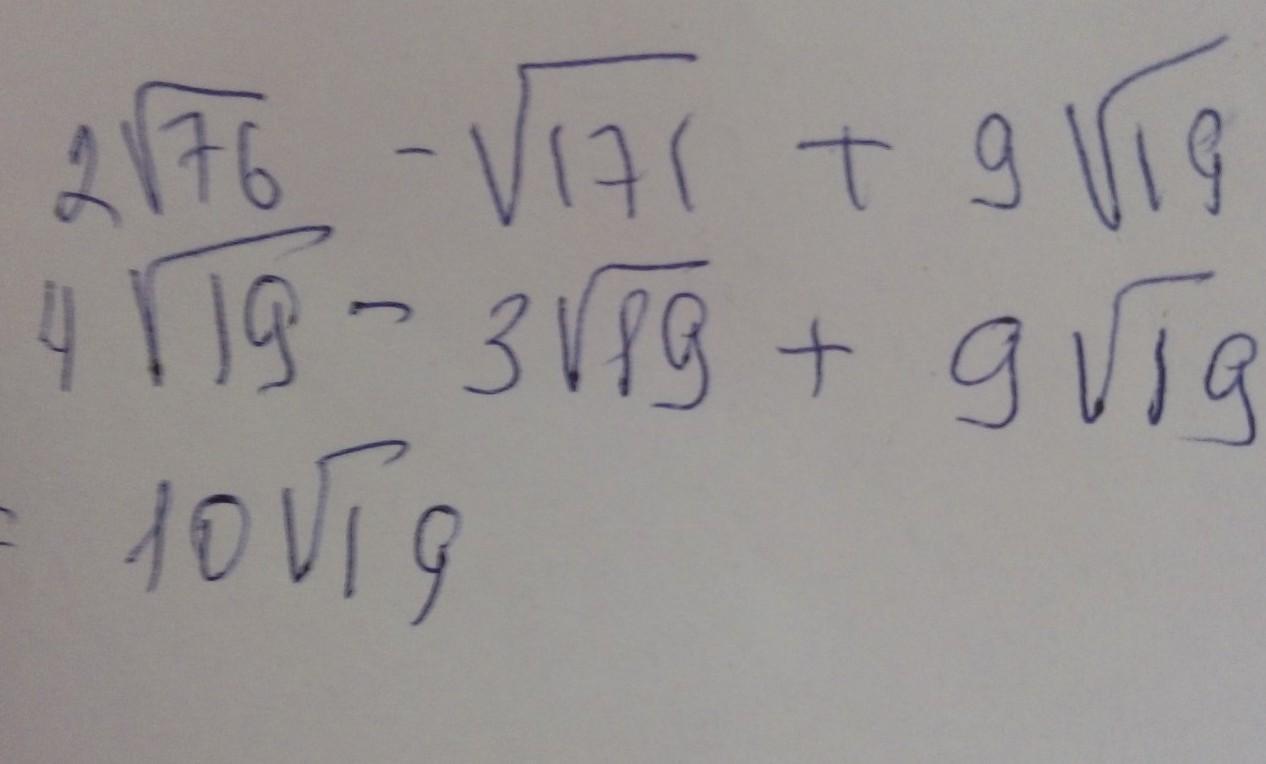 2√76 - √171 + 9√19
4√19 - 3√19 + 9√19
= 10√19